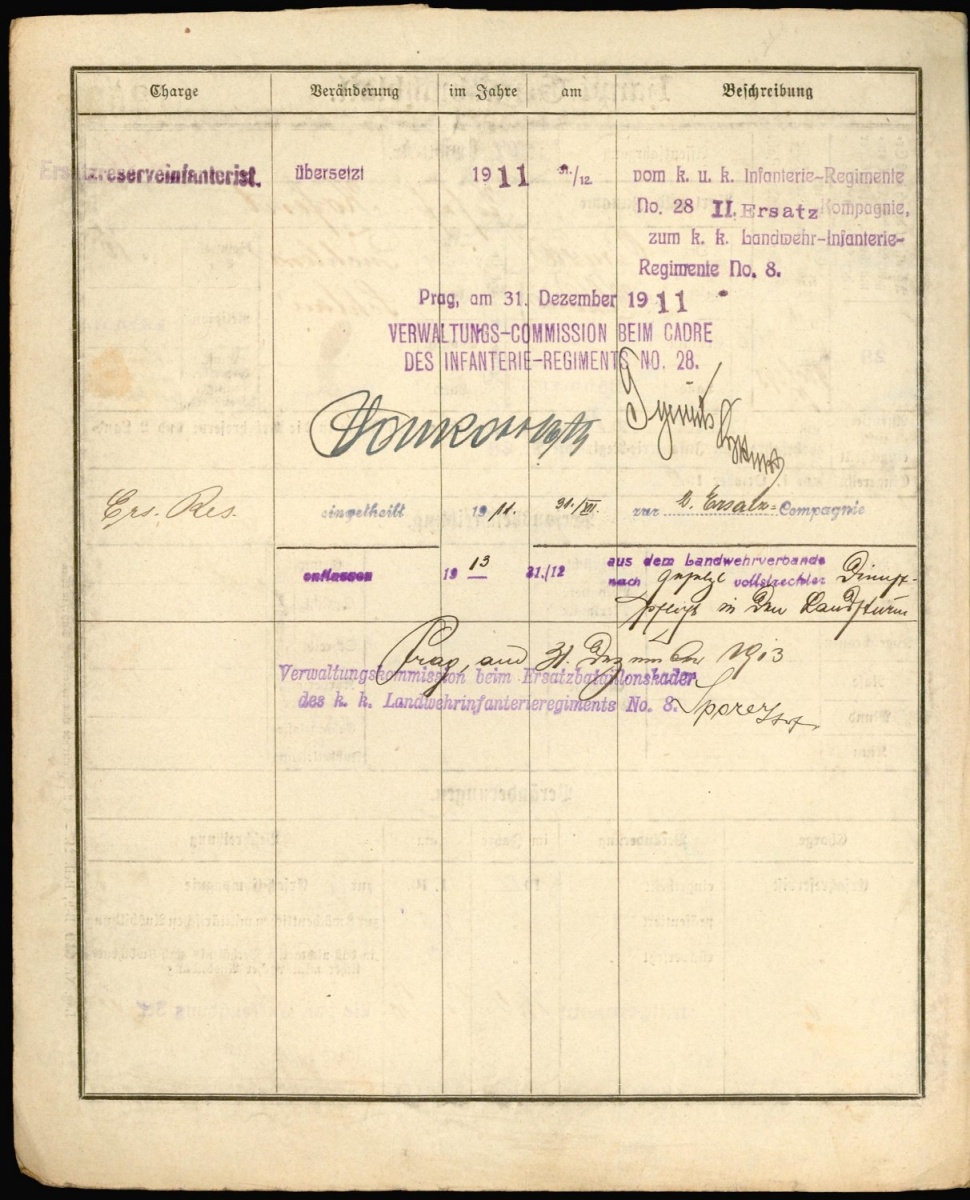 Charge Veränderung im Jahre am Beschreibung
Ersatzreserveinfanterist. übersetzt 1911 31/12. vom k. u. k. Infanterie-Regimente
No. 28 II. Ersatz Kompagnie,
zum k. k. Landwehr-Infanterie-
Regimente No. 8.
Prag, am 31. Dezember 1911
VERWALTUNGS-COMMISSION BEIM CADRE
DES INFANTERIE-REGIMENTS NO. 28.
Ers. Res. eingetheilt 1911. 31./XII. zur Ersatz-Compagnie
entlassen 1913 31./12 aus dem Landwehrverbande
nach gesetzl vollstreckter Dienst-
pflicht in den Landsturm
Prag, am 31. Dezember 1913
Verwaltungskommission beim Ersatzbataillonskader
des k. k. Landwehrinfanterieregiments No. 8.